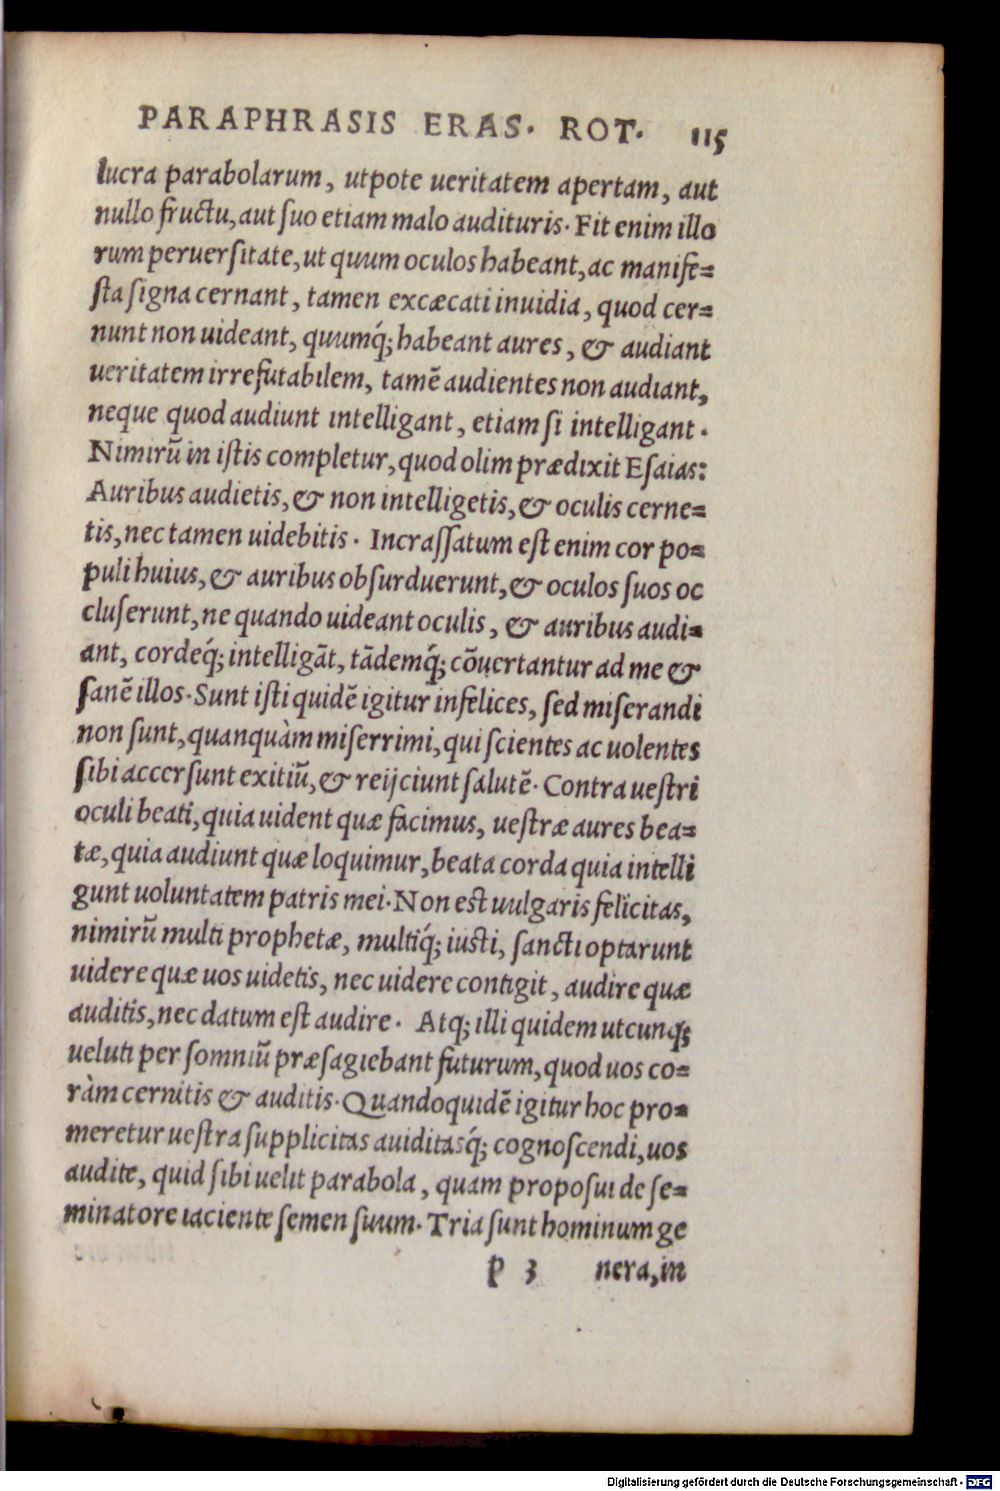 PARAPHRASIS ERAS. ROT. 115
lucra parabolarum, utpote ueritatem apertam, aut
nullo fructu, aut suo etiam malo audituris. Fit enim illo
rum peruersitate, ut quum oculos habeant, ac manife=
sta signa cernant, tamen excæcati inuidia, quod cer=
nunt non uideant, quumq́; habeant aures, & audiant
ueritatem irrefutabilem, tamē audientes non audiant,
neque quod audiunt intelligant, etiam si intelligant.
Nimirū in istis completur, quod olim prædixit Esaias:
Auribus audietis, & non intelligetis, & oculis cerne=
tis, nec tamen uidebitis. Incrassatum est enim cor po=
puli huius, & auribus obsurduerunt, & oculos suos oc
cluserunt, ne quando uideant oculis, & auribus audi=
ant, cordeq́; intelligāt, tādemq́; cōuertantur ad me &
sanē illos. Sunt isti quidē igitur infelices, sed miserandi
non sunt, quanquàm miserrimi, qui scientes ac uolentes
sibi accersunt exitiū, & reijciunt salutē. Contra uestri
oculi beati, quia uident quæ facimus, uestræ aures bea=
tæ, quia audiunt quæ loquimur, beata corda quia intelli
gunt uoluntatem patris mei. Non est uulgaris felicitas,
nimirū multi prophetæ, multiq́; iusti, sancti optarunt
uidere quæ uos uidetis, nec uidere contigit, audire quæ
auditis, nec datum est audire. Atq; illi quidem utcunq;
ueluti per somniū præsagiebant futurum, quod uos co=
ràm cernitis & auditis. Quandoquidē igitur hoc pro=
meretur uestra supplicitas auiditasq́; cognoscendi, uos
audite, quid sibi uelit parabola, quam proposui de se=
minatore iaciente semen suum. Tria sunt hominum ge
P 3 nera, in
Digitalisierung gefördert durch die Deutsche Forschungsgemeinschaft - DFG